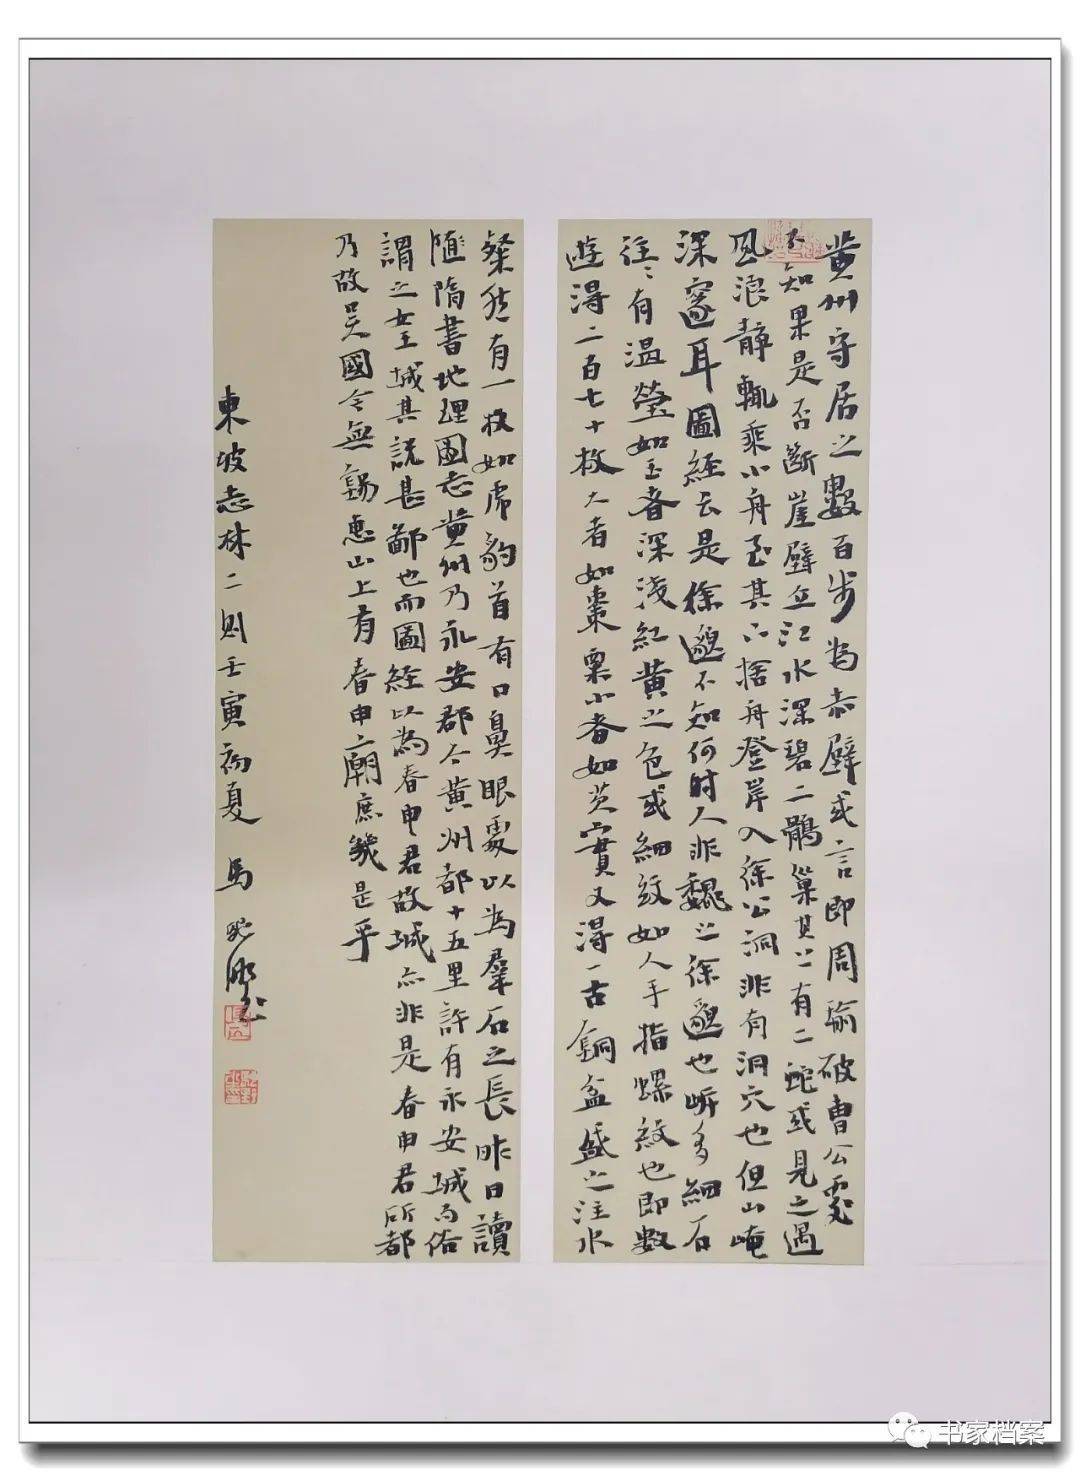 黄州守居之數百步為赤壁或言即周瑜破曹公處
不知果是否斷崖壁立江水深碧二鶻巢其上有二蛇或見之遇
風浪靜輒乘小舟至其下捨舟登岸入徐公洞非有洞穴也但山崦
深邃耳圖經云是徐邈不知何時人非魏之徐邈也岸多細石
往〻有温瑩如玉者深淺紅黄之色或細紋如人手指螺紋也即數
遊得二百七十枚大者如棗栗小者如芡實又得一古銅盆盛之注水
粲然有一枚如虎豹首有口鼻眼處以為羣石之長昨日讀
隨隋書地理圖志黄州乃永安郡今黄州都十五里許有永安城而俗
謂之女王城其說甚鄙也而圖經以為春申君故城亦非是春申君所都
乃故吴國今無錫惠山上有春申廟庶幾是乎
東坡志林二則壬寅初夏 馬
书家档案